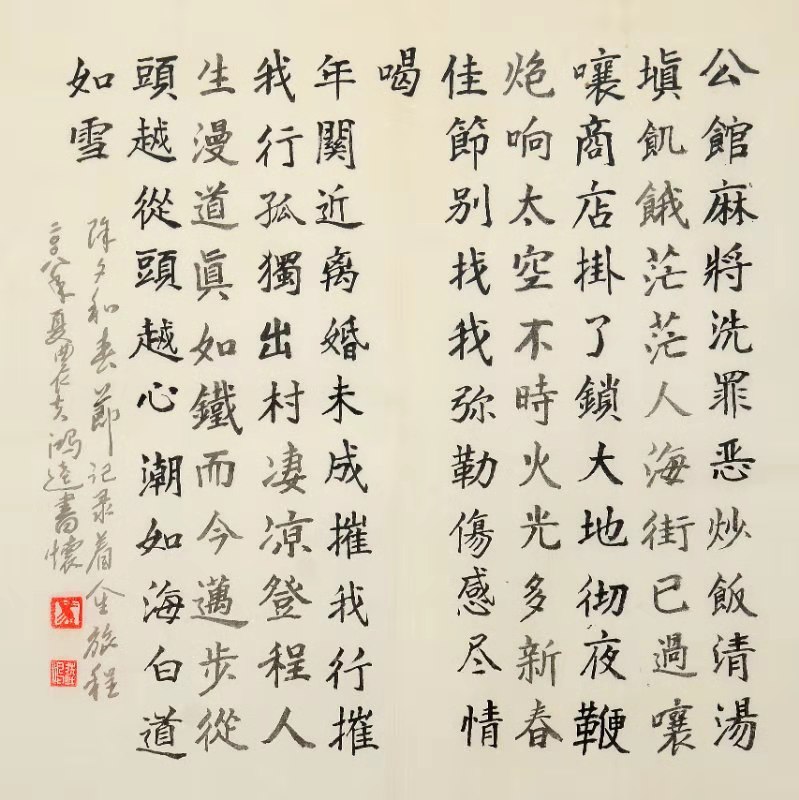 公館麻將洗罪恶炒飯清湯
填飢餓茫茫人海街已過嚷
嚷商店掛了鎖大地彻夜鞭
炮响太空不時火光多新春
佳節别找我弥勒傷感尽情
喝
年關近离婚未成摧我行摧
我行孤獨出村凄凉登程人
生漫道真如鐵而今邁步從
頭越從頭越心潮如海白道
如雪
除夕和春節记录着人生旅程
夏 鴻逵書懷